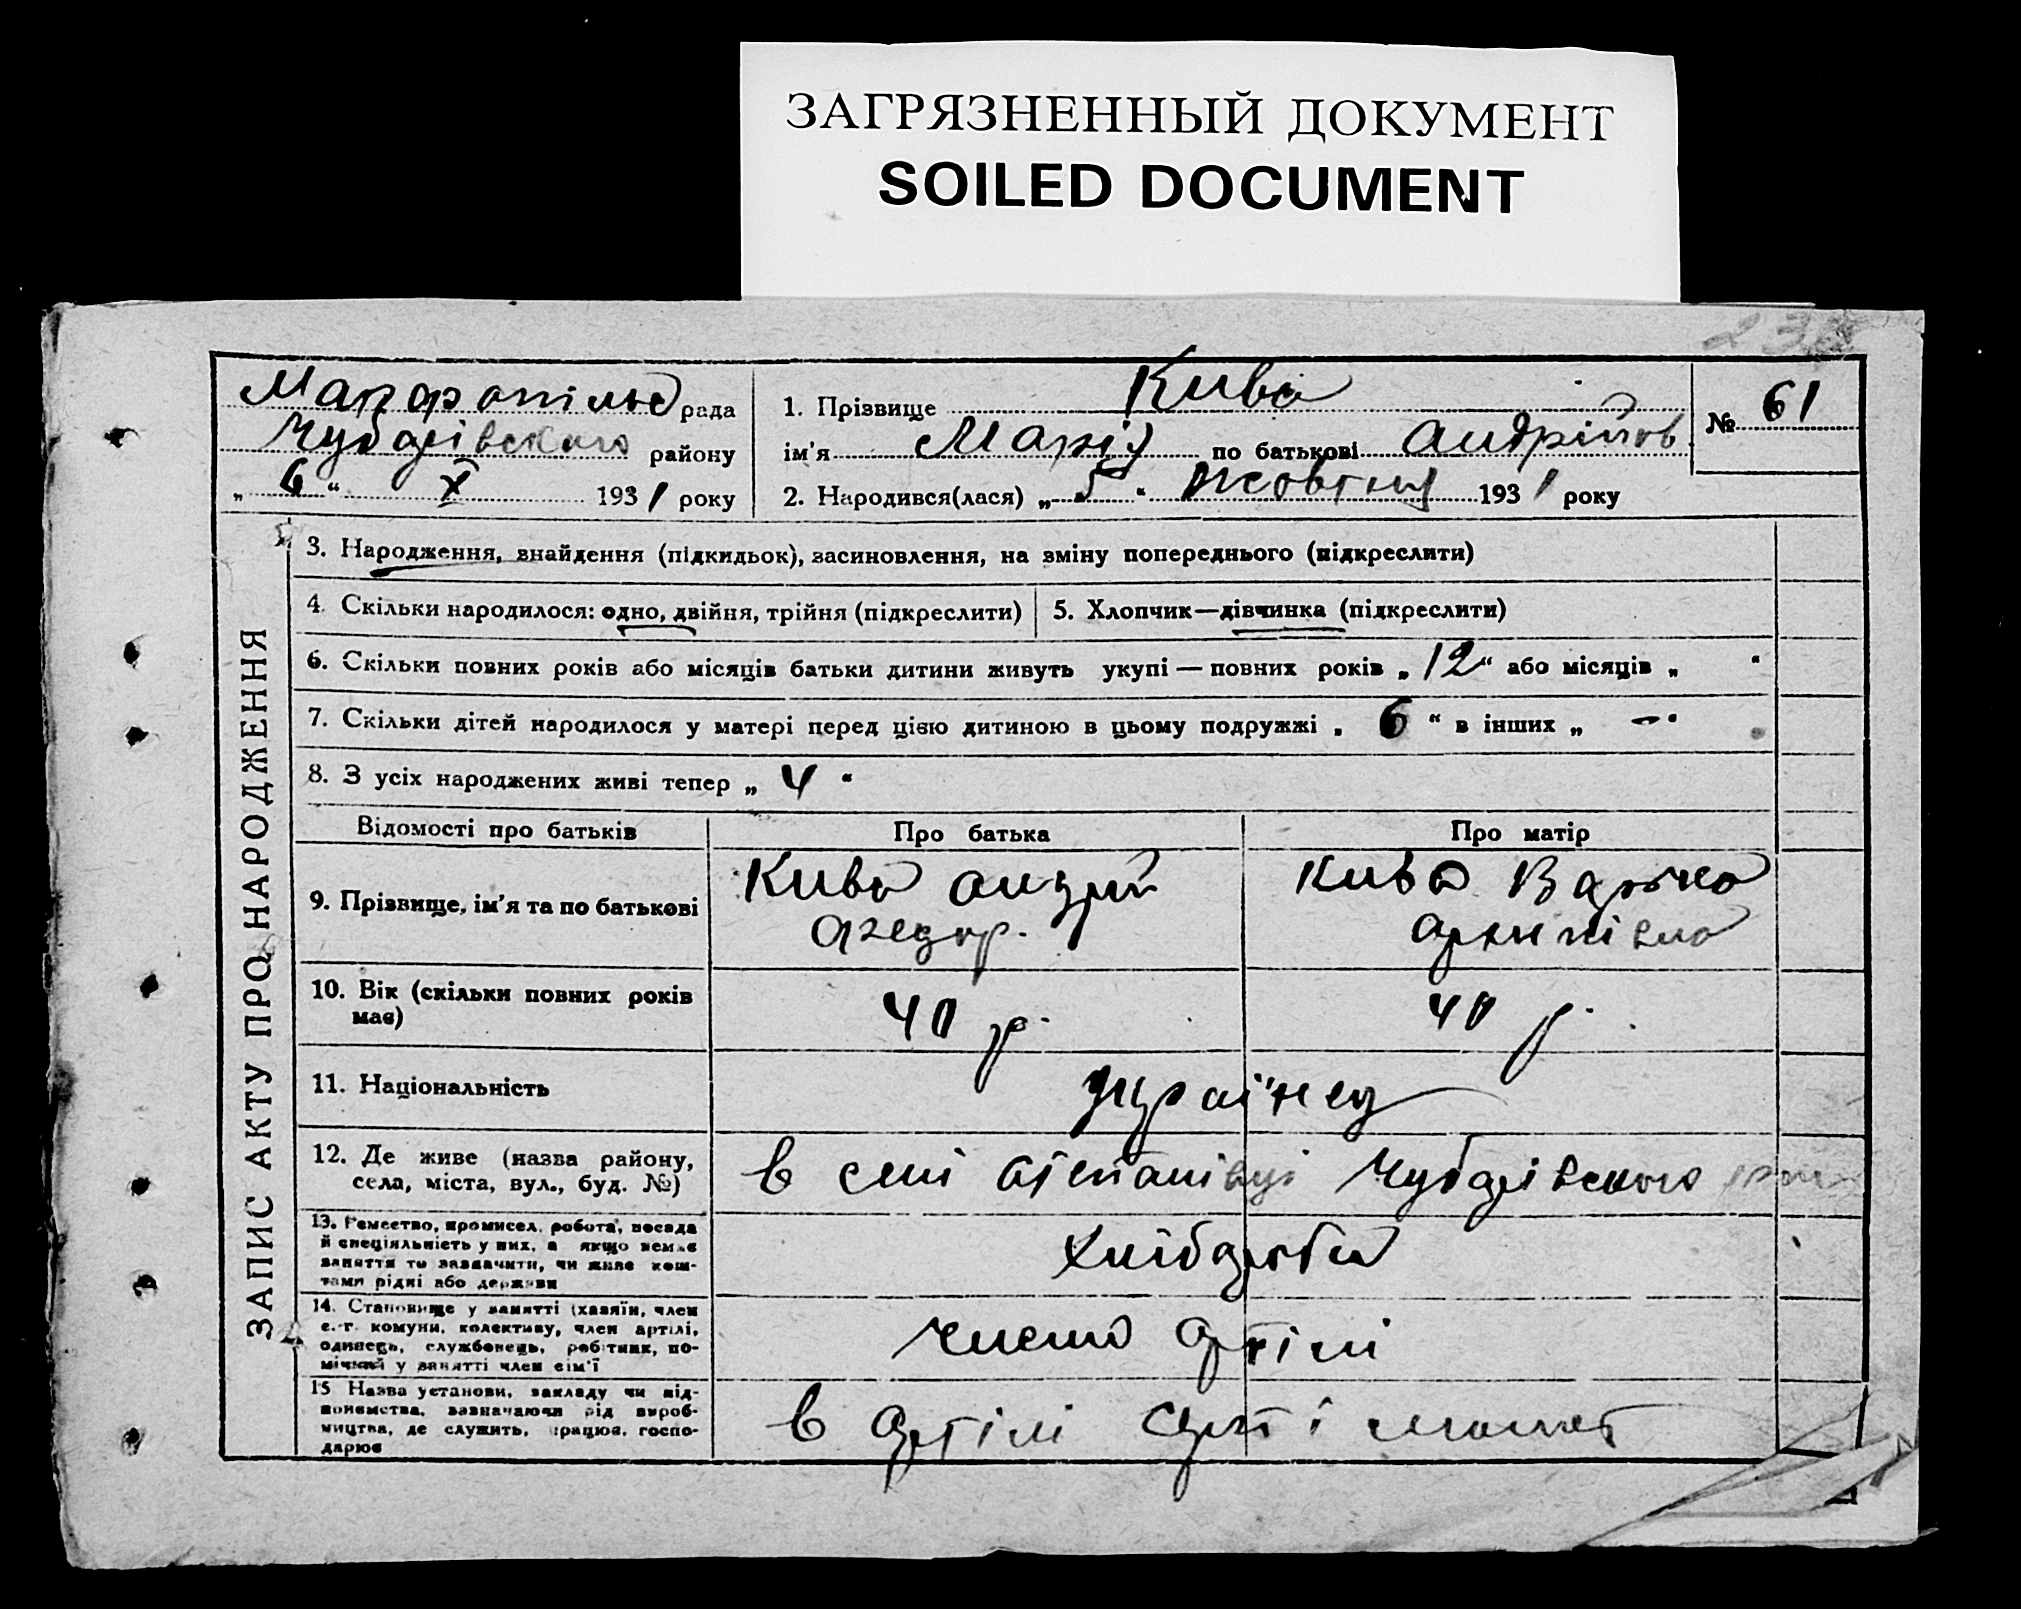 ЗАГРЯЗНЕННЫЙ ДОКУМЕНТ
SOILED DOCUMENT
рада
Чубарівського району
„ 6 “ X 1931 року
1. Прізвище Кива
ім'я Марія по батькові Андрійов
2. Народився(лася) „ 5 “ Жовтня 1931 року
№ 61
ЗАПИС АКТУ ПРО НАРОДЖЕННЯ
3. Народження, знайдення (підкидьок), засиновлення, на зміну попереднього (підкреслити)
4. Скільки народилося: одно, двійня, трійня (підкреслити)
5. Хлопчик—дівчинка (підкреслити)
6. Скільки повних років або місяців батьки дитини живуть укупі — повних років „ 12 “ або місяців „ “
7. Скільки дітей народилося у матері перед цією дитиною в цьому подружжі „ 6 “ в інших „ — “
8. З усіх народжених живі тепер „ 4 “
Відомості про батьків
Про батька
Про матір
9. Прізвище, ім'я та по батькові
Кива Андрій
Федор.
Кива Варька
Архипівна
10. Вік (скільки повних років
має)
40 р.
40 р.
11. Національність
Українец
12. Де живе (назва району,
села, міста, вул., буд. №)
в селі Степанівці Чубарівського рай
13. Ремество, промисел, робота, посада
й спеціяльність у них, а якщо немає
заняття то зазначити, чи живе кош-
тами рідні або держави
Хлібороби
14. Становище у занятті (хазяїн, член
с.-г. комуни, колективу, член артілі,
одинець, службовець, робітник, по-
мічний у занятті член сім'ї
члени артілі
15 Назва установи, закладу чи під-
приємства, зазначаючи рід вироб-
ництва, де служить, працює, госпо-
дарює
в артілі